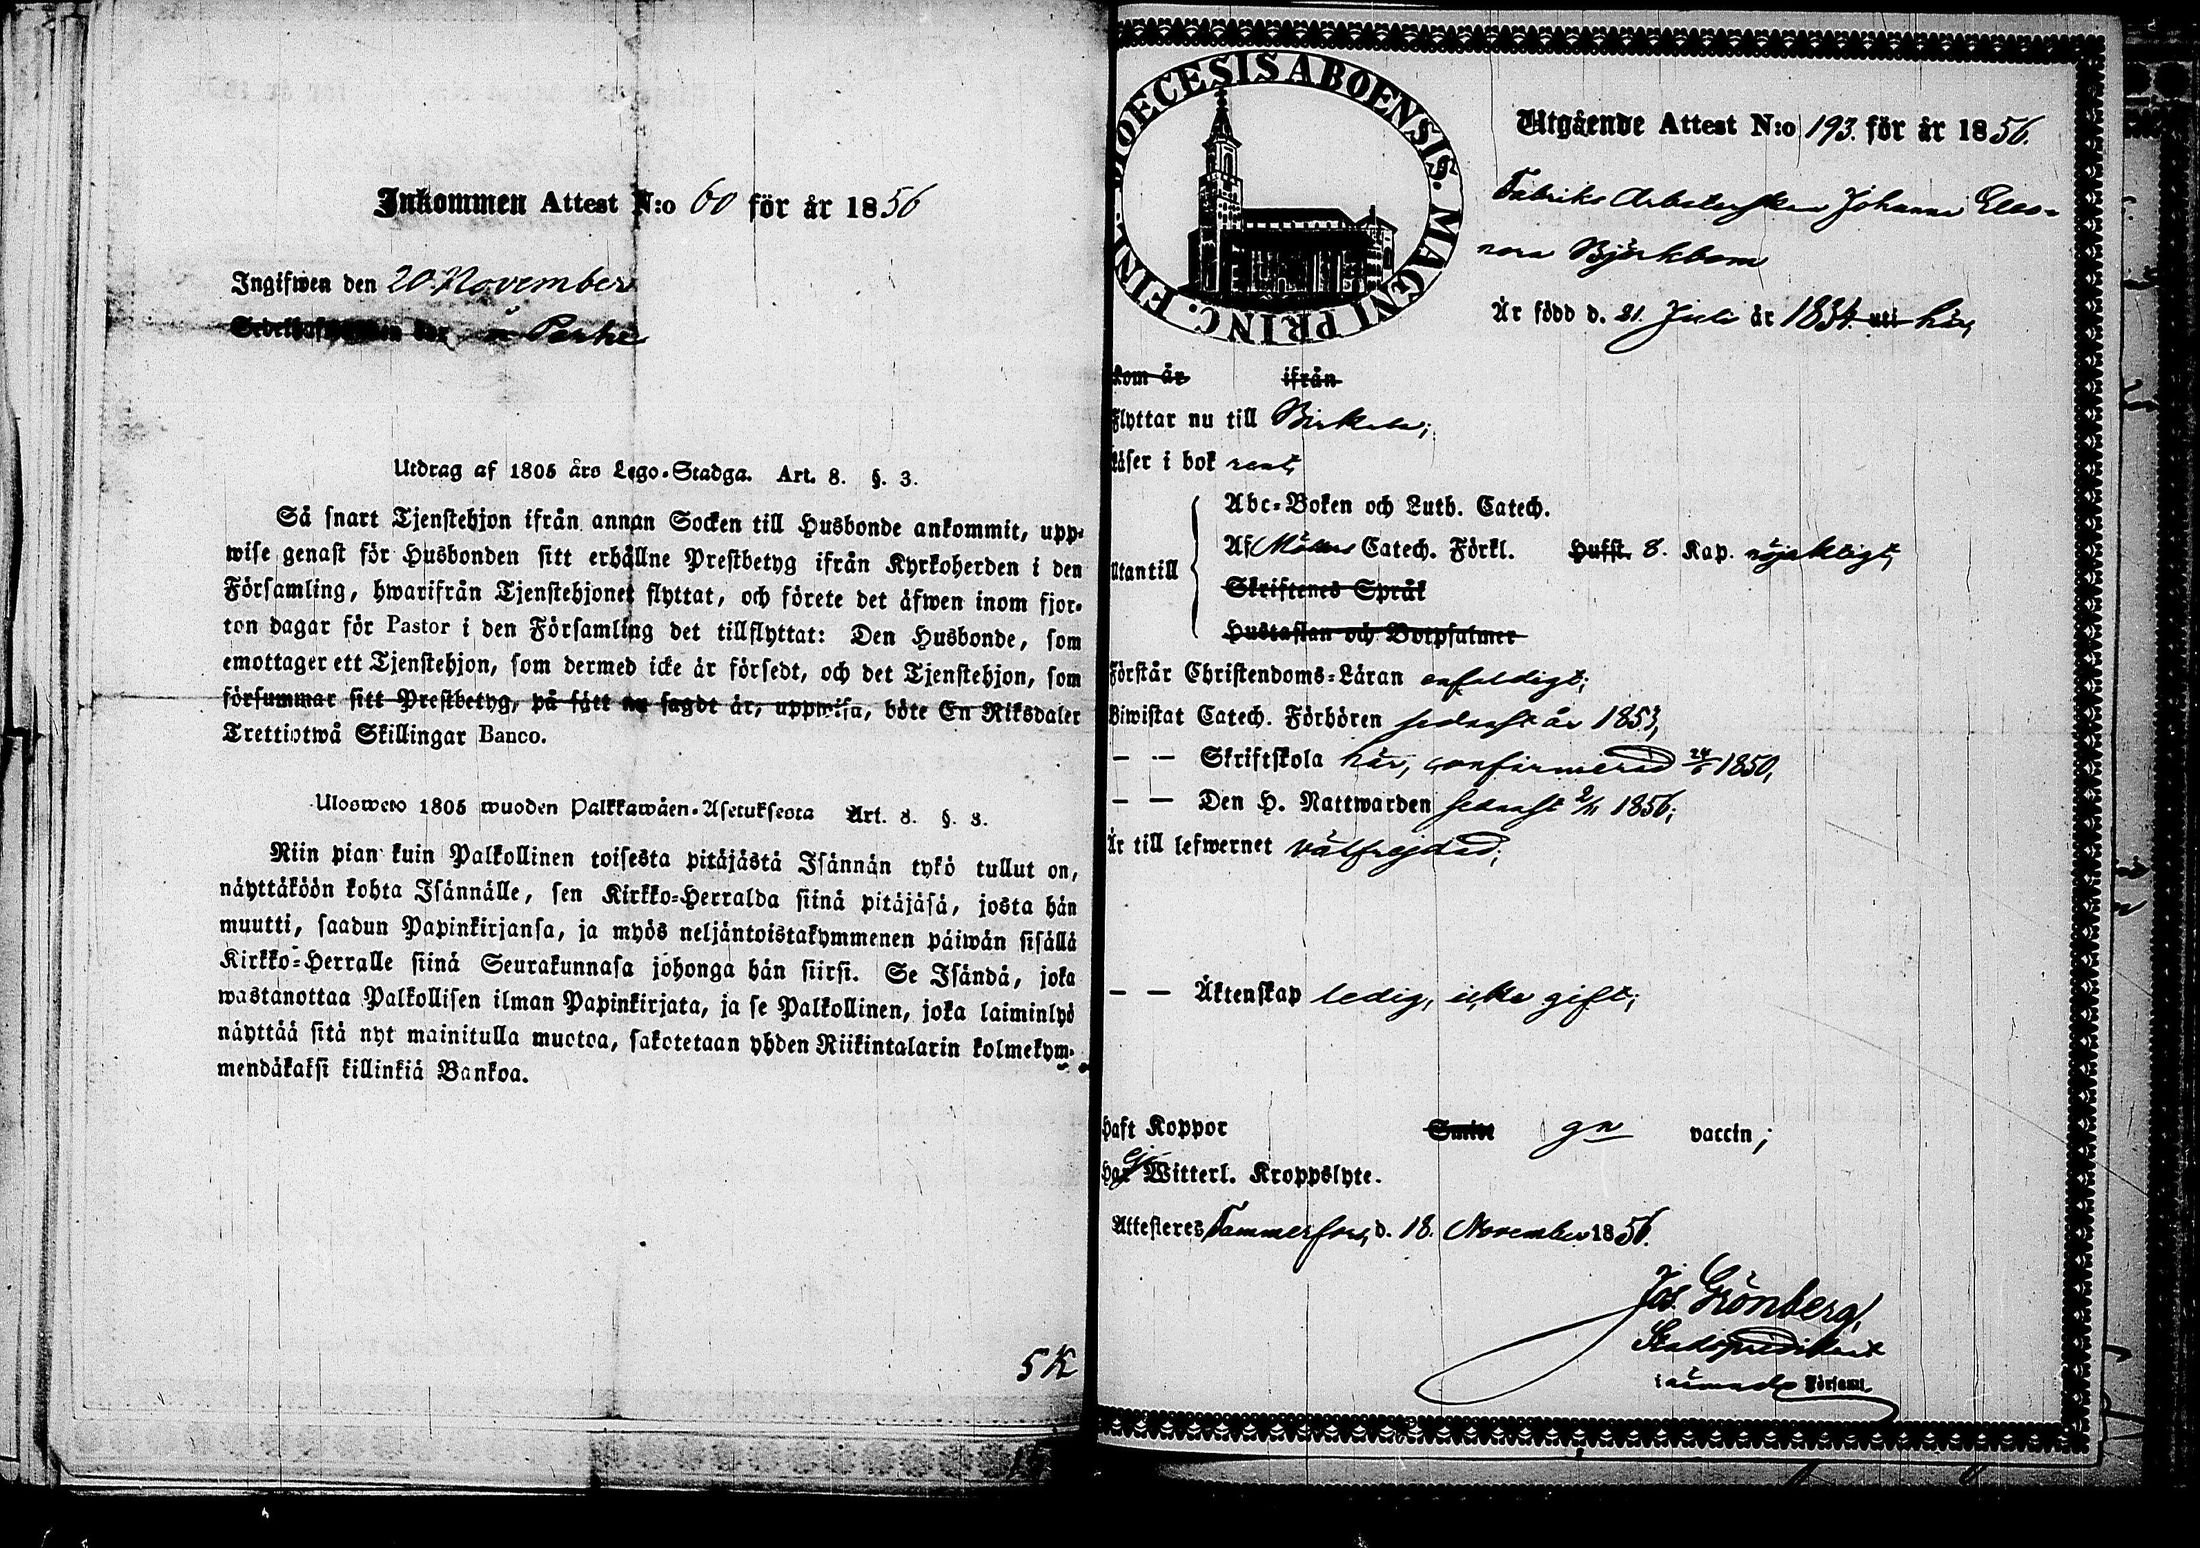 Inkommen Attest N:o 60 för år 1856
Ingifwen den 20 November
Perhe
Utdrag af 1805 års Lego-Stadga. Art. 8. §. 3.
Så snart Tjenstehjon ifrån annan Socken till Husbonde ankommit, upp-
wise genast för Husbonden sitt erhållne Prestbetyg ifrån Kyrkoherden i den
Församling, hwarifrån Tjenstehjonet flyttat, och förete det äfwen inom fjor-
ton dagar för Pastor i den Församling det tillflyttat: Den Husbonde, som
emottager ett Tjenstehjon, som dermed icke är försedt, och det Tjenstehjon, som
försummar sitt Prestbetyg, på sätt nu sagdt är, uppwisa, böte En Riksdaler
Trettiotwå Skillingar Banco.
Ulosweto 1805 wuoden Palkkawäen-Asetuksesta Art. 8. §. 3.
Niin pian kuin Palkollinen toisesta pitäjästä Isännän tykö tullut on,
näyttäköön kohta Isännälle, sen Kirkko-Herralda siinä pitäjäsä, josta hän
muutti, saadun Papinkirjansa, ja myös neljäntoistakymmenen päiwän sisällä
Kirkko-Herralle siinä Seurakunnasa johonga hän siirsi. Se Isändä, joka
wastanottaa Palkollisen ilman Papinkirjata, ja se Palkollinen, joka laiminlyö
näyttää sitä nyt mainitulla muotoa, sakotetaan yhden Riikintalarin kolmekym-
mendäkaksi killinkiä Bankoa.
5 K
DIOECESIS ABOENSIS. MAGNI PRINC. FINL.
Utgående Attest N:o 193. för år 1856.
Fabriks Arbeterskan Johanna Eleo-
nora Björkbom
Är född d. 21. Juli år 1834. uti här,
kom år ifrån
Flyttar nu till Birkala;
Läser i bok rent,
Abc-Boken och Luth. Catech.
Utantill
Af Möllers Catech. Förkl. Husst. 8. Kap. nöjaktigt,
Skriftenes Språk
Hustaflan och Botpsalmer
Förstår Christendoms-Läran enfaldigt;
Biwistat Catech. Förhören sednast år 1853,
— — Skriftskola här, confirmerad 24/6 1850,
— — Den H. Nattwarden sednast 2/11 1856;
Är till lefwernet välfrejdad;
— — Äktenskap ledig, icke gift;
Haft Koppor Smitt gn vaccin;
Har ej Witterl. Kroppslyte.
Attesteres Tammerfors, d. 18. November 1856.
Jos. Grönberg,
Stadspredikant
i Församl.